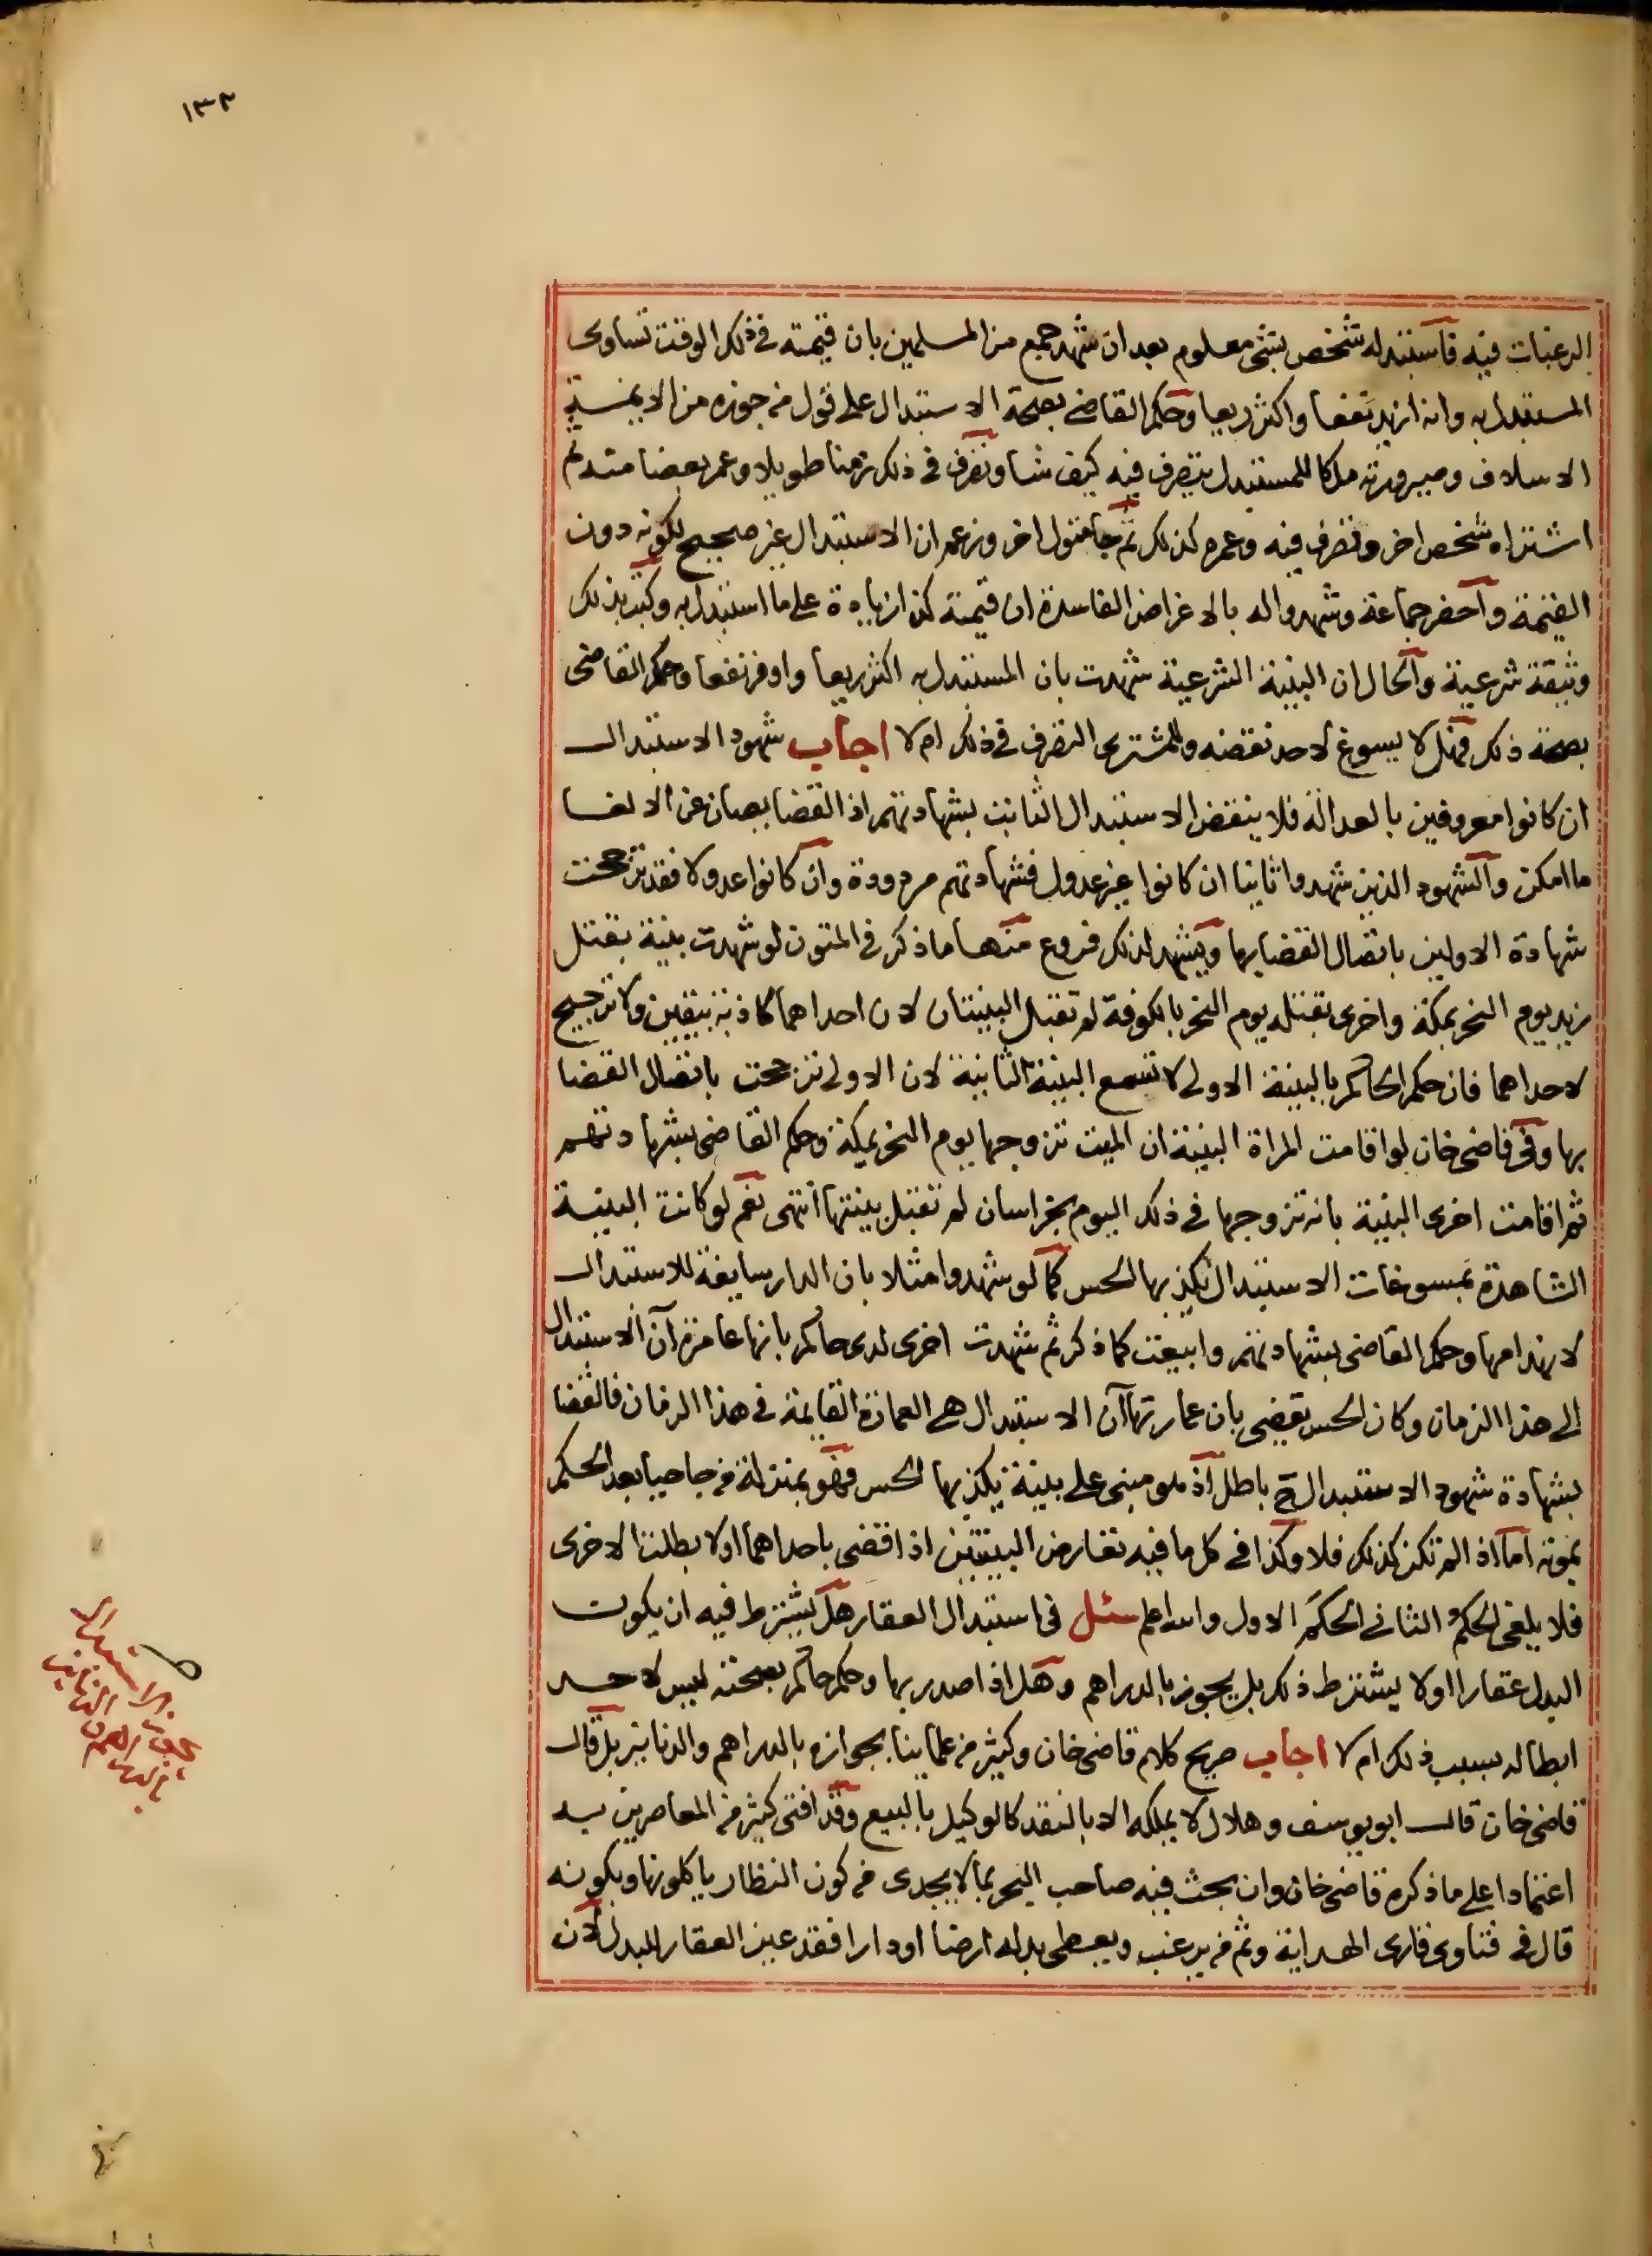 ١٣٣
الرغبات فيه فاستبدله شخص بشئ معلوم بعد ان شهد جمع من المسلمين بان قيمته فى ذلك الوقت تساوى
المستبدل به وانه ازيد نفعا واكثر ريعا وحكم القاضى بصحة الاستبدال على قول من جوزه من الايمة
الاسلاف وصيرورته ملكا للمستبدل يتصرف فيه كيف شا وتصرف فى ذلك زمنا طويلا وعمر بعضا منه ثم
اشتراه شخص اخر وتصرف فيه وعمره كذلك ثم جا متول اخر وزعم ان الاستبدال غير صحيح لكونه دون
القيمة واحضر جماعة وشهدوا له بالاغراض الفاسدة ان قيمته كذا زيادة على ما استبدل به وكتب بذلك
وثيقة شرعية والحال ان البينة الشرعية شهدت بان المستبدل به اكثر ريعا واوفر نفعا وحكم القاضى
بصحة ذلك فهل لا يسوغ لاحد نقضه وللمشترى التصرف فى ذلك ام لا اجاب شهود الاستبدال
ان كانوا معروفين بالعدالة فلا ينقض الاستبدال الثابت بشهادتهم اذ القضا يصان عن الالغا
ما امكن والشهود الذين شهدوا ثانيا ان كانوا غير عدول فشهادتهم مردودة وان كانوا عدولا فقد ترجحت
شهادة الاولين باتصال القضا بها ويشهد لذلك فروع منها ما ذكر فى المتون لو شهدت بينة بقتل
زيد يوم النحر بمكة واخرى بقتله يوم النحر بالكوفة لم تقبل البينتان لان احداهما كاذبة بيقين ولا ترجيح
لاحداهما فان حكم الحاكم بالبينة الاولى لا تسمع البينة الثانية لان الاولى ترجحت باتصال القضا
بها وفى قاضى خان لو اقامت المراة البينة ان الميت تزوجها يوم النحر بمكة وحكم القاضى بشهادتهم
ثم اقامت اخرى البينة بانه تزوجها فى ذلك اليوم بخراسان لم تقبل بينتها انتهى نعم لو كانت البينة
الشاهدة بمسوغات الاستبدال يكذبها الحس كما لو شهدوا مثلا بان الدار سايغة للاستبدال
لانهدامها وحكم القاضى بشهادتهم وابيعت كما ذكر ثم شهدت اخرى لدى حاكم بانها عامرة آن الاستبدال
الى هذا الزمان وكان الحس يقضى بان عمارتها آن الاستبدال هى العمارة القايمة فى هذا الزمان فالقضا
بشهادة شهود الاستبدال ح باطل اذ هو مبنى على بينة يكذبها الحس فهو بمنزلة من جا حيا بعد الحكم
بموته اما اذا لم تكن كذلك فلا وكذا فى كل ما فيه تعارض البينتين اذا قضى باحداهما اولا بطلت الاخرى
فلا يلغى الحكم الثانى الحكم الاول والله اعلم سئل فى استبدال العقار هل يشترط فيه ان يكون
البدل عقارا اولا يشترط ذلك بل يجوز بالدراهم وهل اذا صدر بها وحكم حاكم بصحته ليس لاحد
ابطاله بسبب ذلك ام لا اجاب صريح كلام قاضى خان وكثير من علماينا بجوازه بالدراهم والدنانير بل قال
قاضى خان قال ابو يوسف وهلال لا يملكه الا بالنقد كالوكيل بالبيع وقد افتى كثير من المعاصرين به
اعتمادا على ما ذكره قاضى خان وان بحث فيه صاحب البحر بما لا يجدى من كون النظار ياكلونها وبكونه
قال فى فتاوى قارى الهداية وثم من يرغب ويعطى بدله ارضا او دارا فقد عين العقار للبدل لان